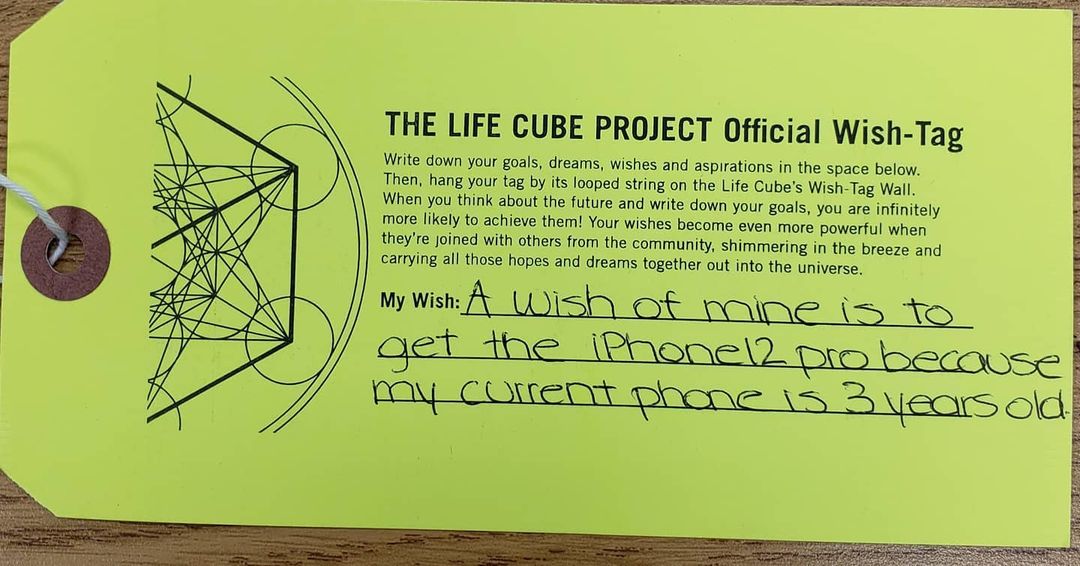 THE LIFE CUBE PROJECT Official Wish-Tag
Write down your goals, dreams, wishes and aspirations in the space below.
Then, hang your tag by its looped string on the Life Cube's Wish-Tag Wall.
When you think about the future and write down your goals, you are infinitely
more likely to achieve them! Your wishes become even more powerful when
they're joined with others from the community, shimmering in the breeze and
carrying all those hopes and dreams together out into the universe.
My Wish: A wish of mine is to
get the iPhone12 pro because
my current phone is 3 years old.